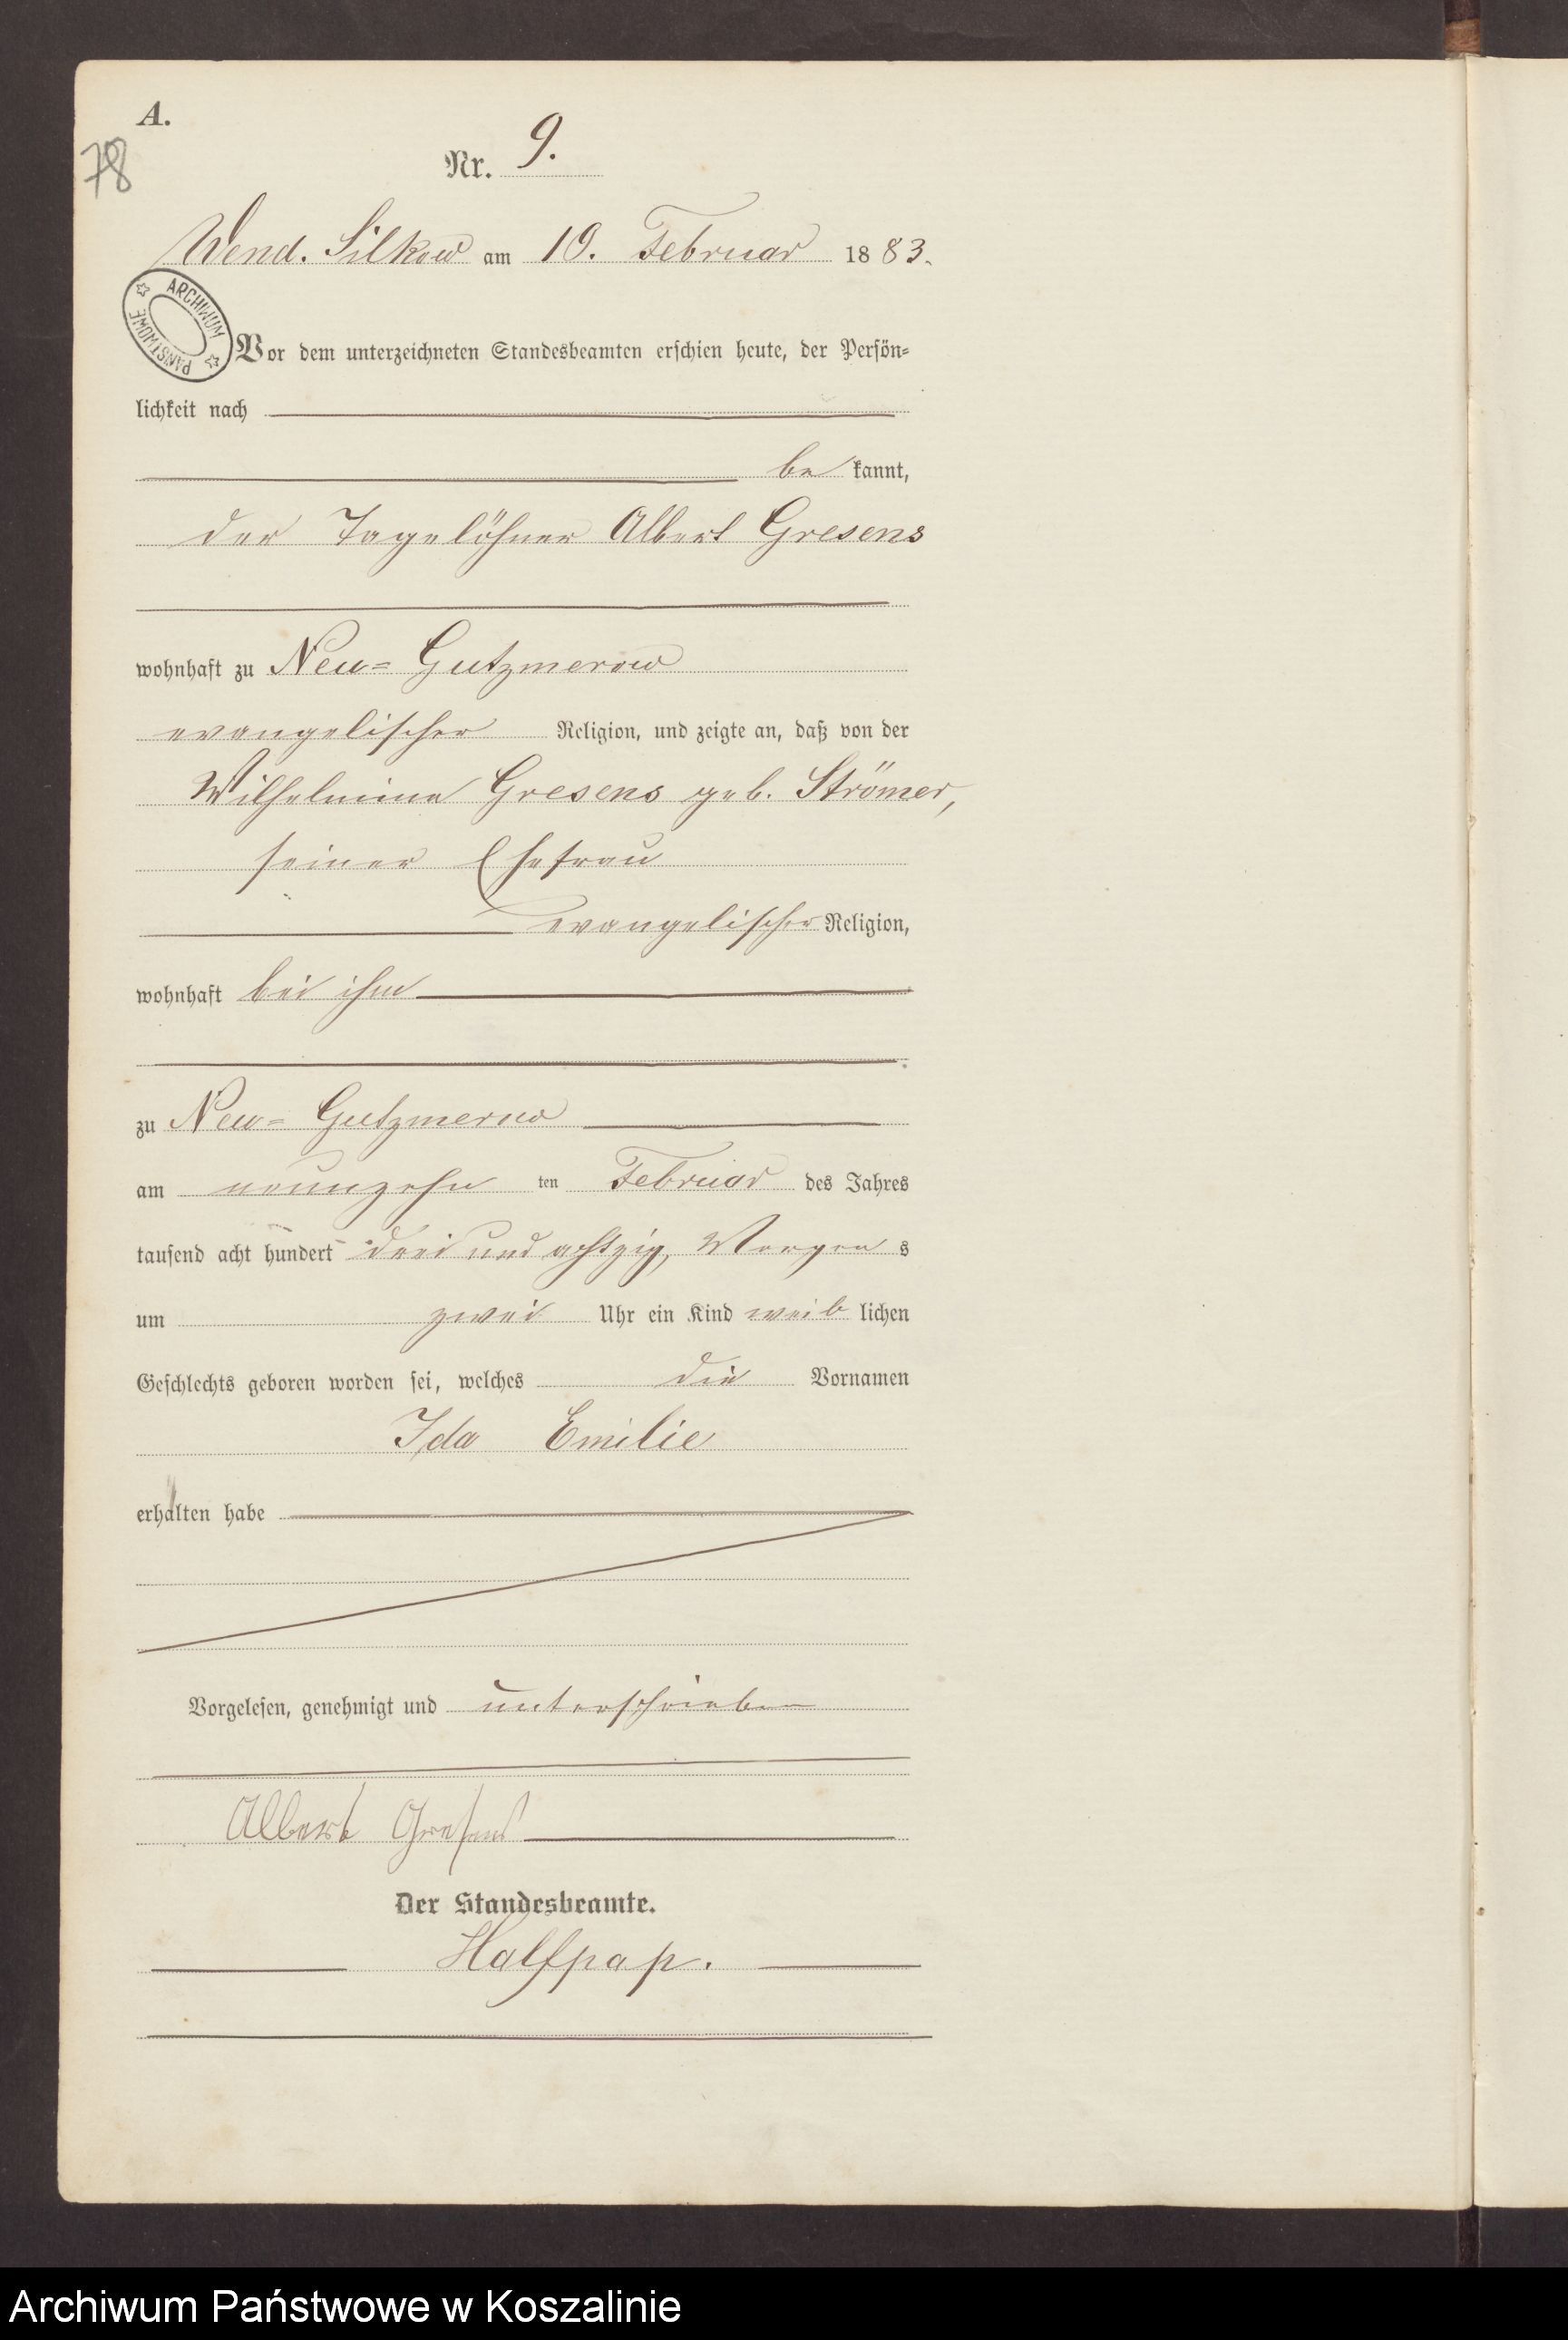 A.
78
Nr. 9.
Wend. Silkow am 19. Februar 1883.
ARCHIWUM PAŃSTWOWE
Vor dem unterzeichneten Standesbeamten erschien heute, der Persön=
lichkeit nach
be kannt,
der Tagelöhner Albert Gresens
wohnhaft zu Neu= Gutzmerow
evangelischer Religion, und zeigte an, daß von der
Wilhelmine Gresens geb. Strömer,
seiner Ehefrau
evangelischer Religion,
wohnhaft bei ihm
zu Neu= Gutzmerow
am neunzehn ten Februar des Jahres
tausend acht hundert drei und achtzig, Morgen s
um zwei Uhr ein Kind weib lichen
Geschlechts geboren worden sei, welches die Vornamen
Ida Emilie
erhalten habe
Vorgelesen, genehmigt und unterschrieben
Albert Gresens
Der Standesbeamte.
Halfpap.
Archiwum Państwowe w Koszalinie